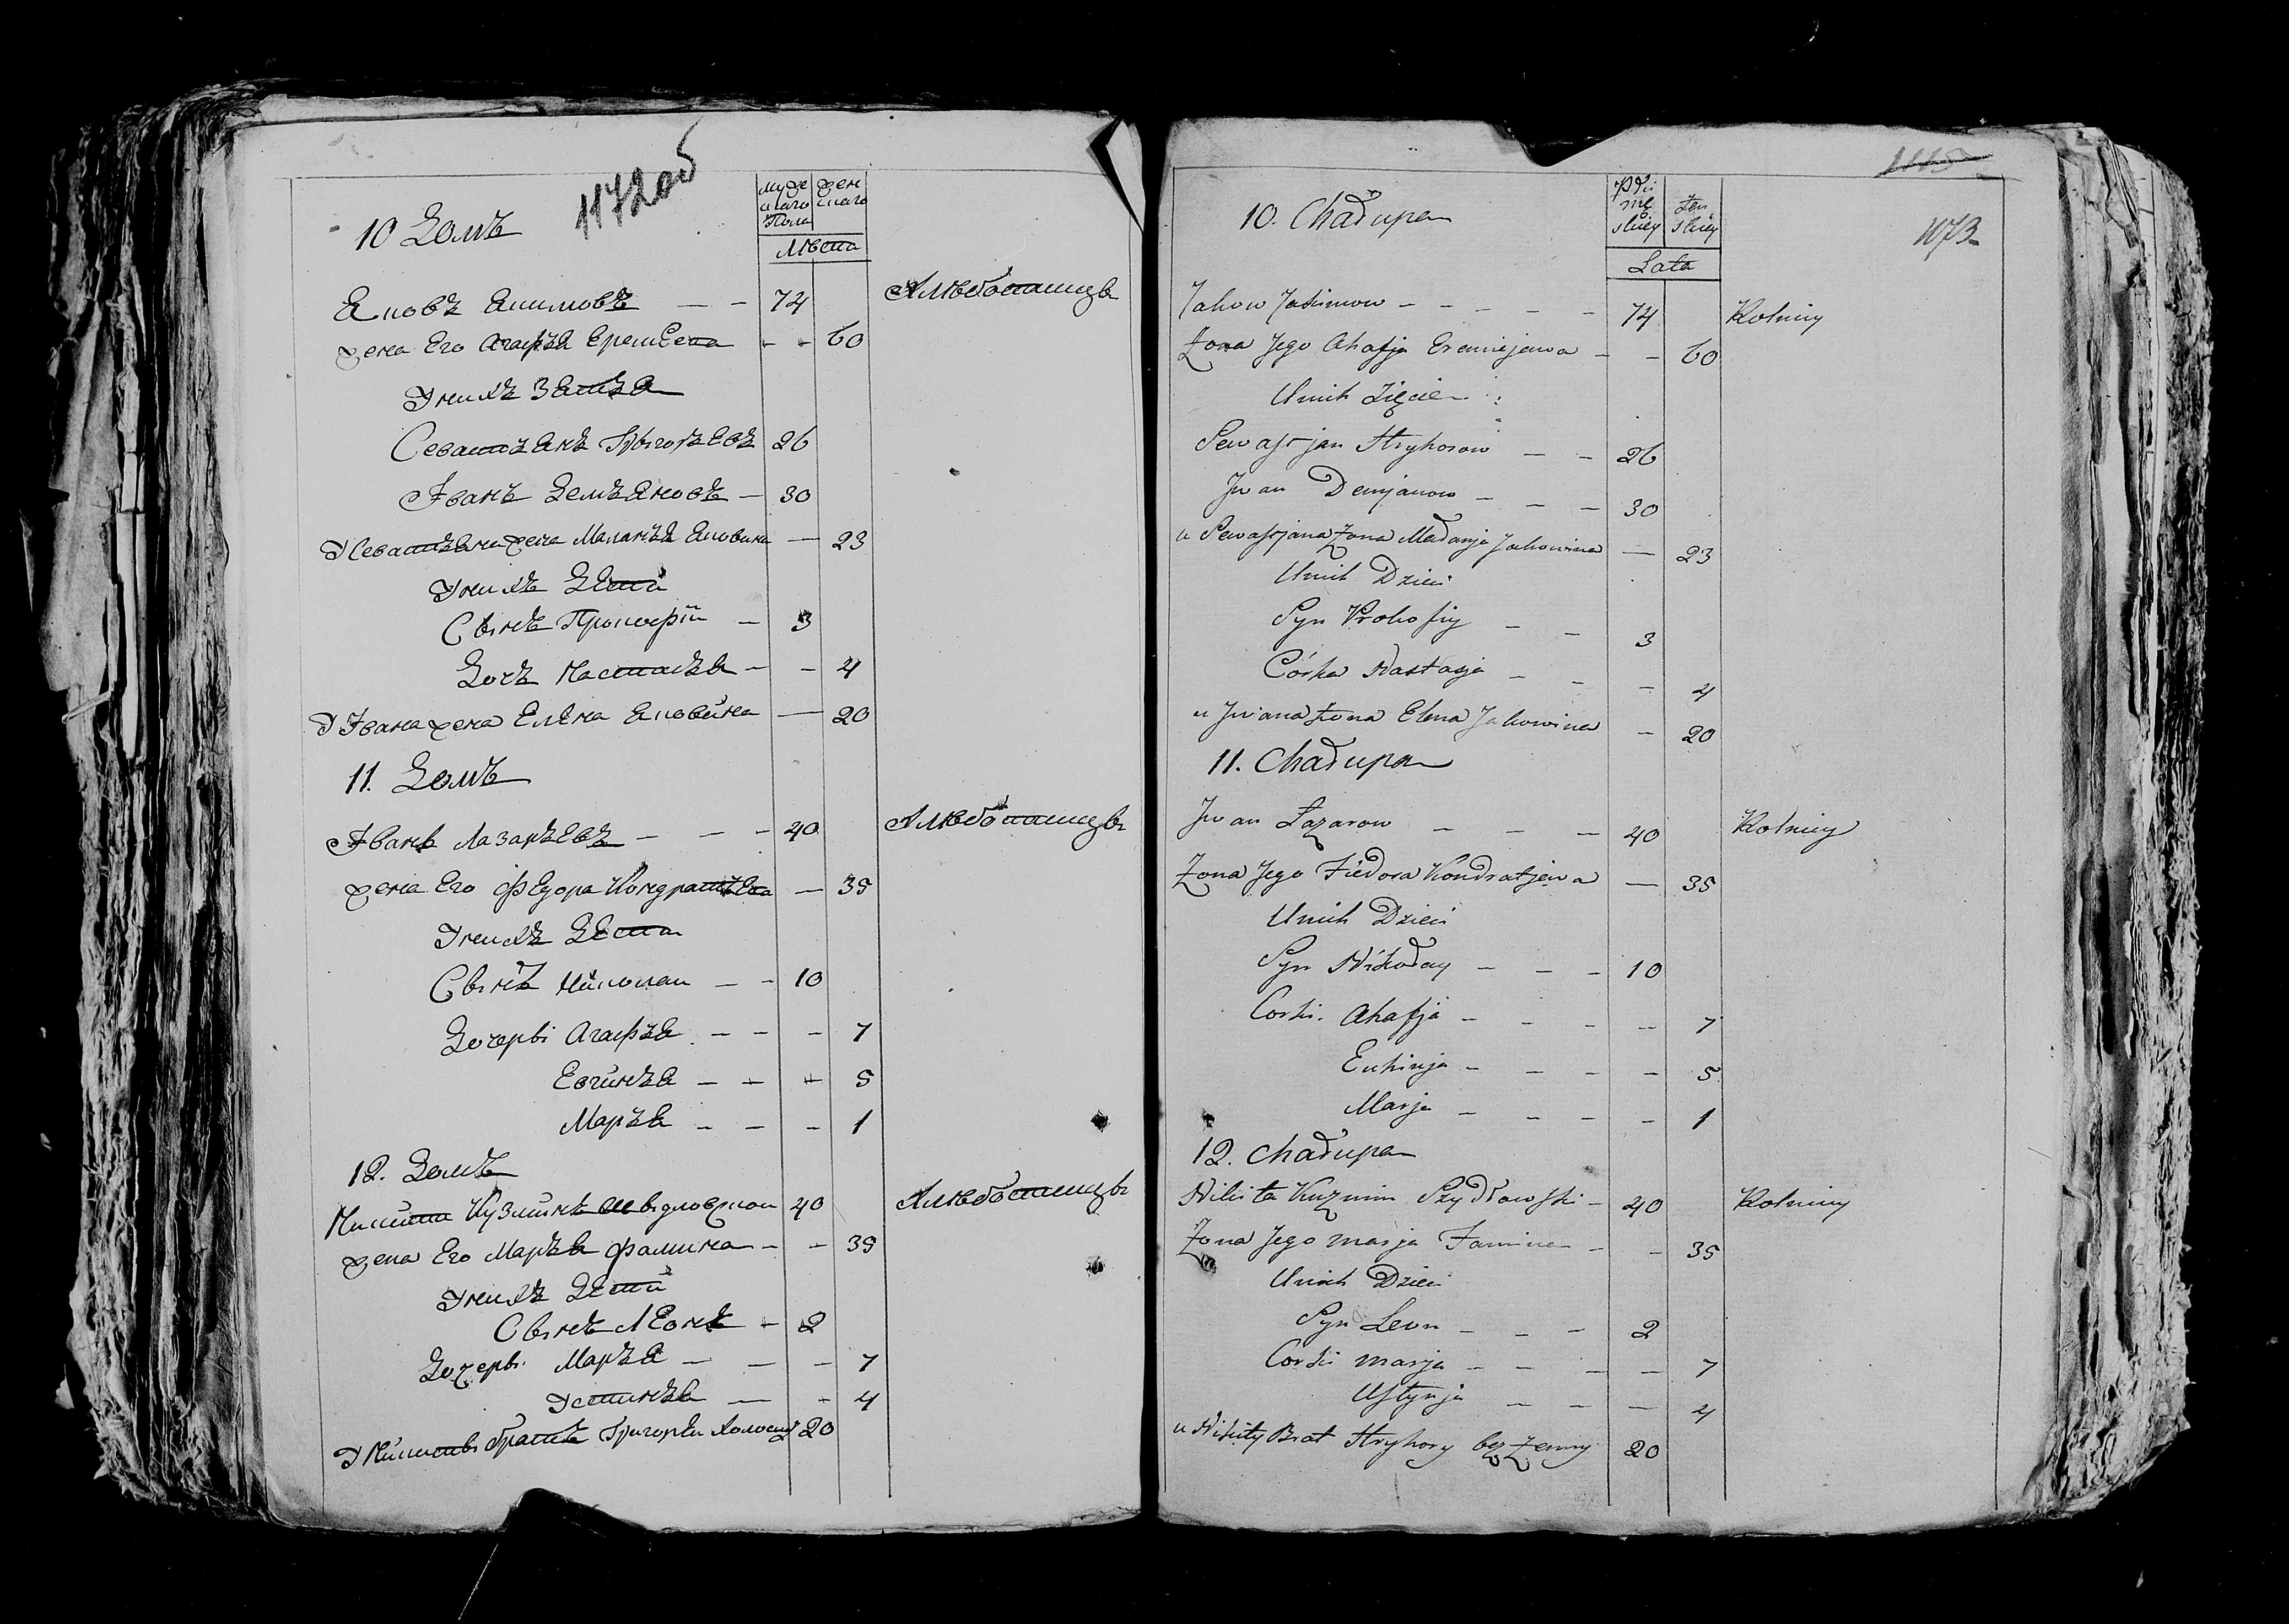 1172 об
10 Домъ
мужескаго пола
женскаго
Лѣта
Яковъ Якимовъ — — 74
Хлѣбопашецъ
жена Его Агафья Еремѣева - - 60
У нихъ Зятья
Севастьянъ Грыгорьевъ 26
Іванъ Демьяновъ — 30
У Севастьяна жена Маланья Яковина — 23
У нихъ Дети
Сынъ Прокофій — 3
Дочь Настасья — - 4
У Івана жена Елена Яковина — 20
11. Домъ
Іванъ Лазарьевъ — — - 40
Хлѣбопашецъ
жена Его Федора Кондратьева — 35
У нихъ Дети
Сынъ Николай — - 10
Дочеры Агафья - - - 7
Евгинья - - - 5
Марья - - - 1
12. Домъ
Никита Кузминъ Шыдловскои 40
Хлѣбопашецъ
жена Его Марья Фамина - - 35
У нихъ Дети
Сынъ Леонъ - 2
Дочеры Марья — — - 7
Устинья — - 4
У Никиты братъ Григорѣи Холость 20
1073
10. Chałupa
płci męskiey
żenskiey
Lata
Jakow Jakimow - - - - - 74
Rolniy
Żona Jego Ahafja Eremiejewa - - 60
U nich Zięcie
Sewastjan Hryhorow - - 26
Jwan Demjanow - - - 30
u Sewastjana Żona Małanja Jakowina — 23
U nich Dzieci
Syn Prokofiy - - 3
Córka Nastasja - - - 4
u Jwana żona Elena Jakowina - 20
11. Chałupa
Jwan Łazarow - - - 40
Rolniy
Żona Jego Fiedora Kondratjewa — 35
U nich Dzieci
Syn Nikołay - - - 10
Corki. Ahafja - - - - 7
Euhinja - - - - 5
Marja - - - - 1
12. Chałupa
Nikita Kuzmin Szydłowski - 40
Rolniy
Żona Jego Marja Famina - - 35
U nich Dzieci
Syn Leon - - - 2
Corki Marja - - - - 7
Ustynja - - - 4
u Nikity Brat Hryhory bez Żenny 20